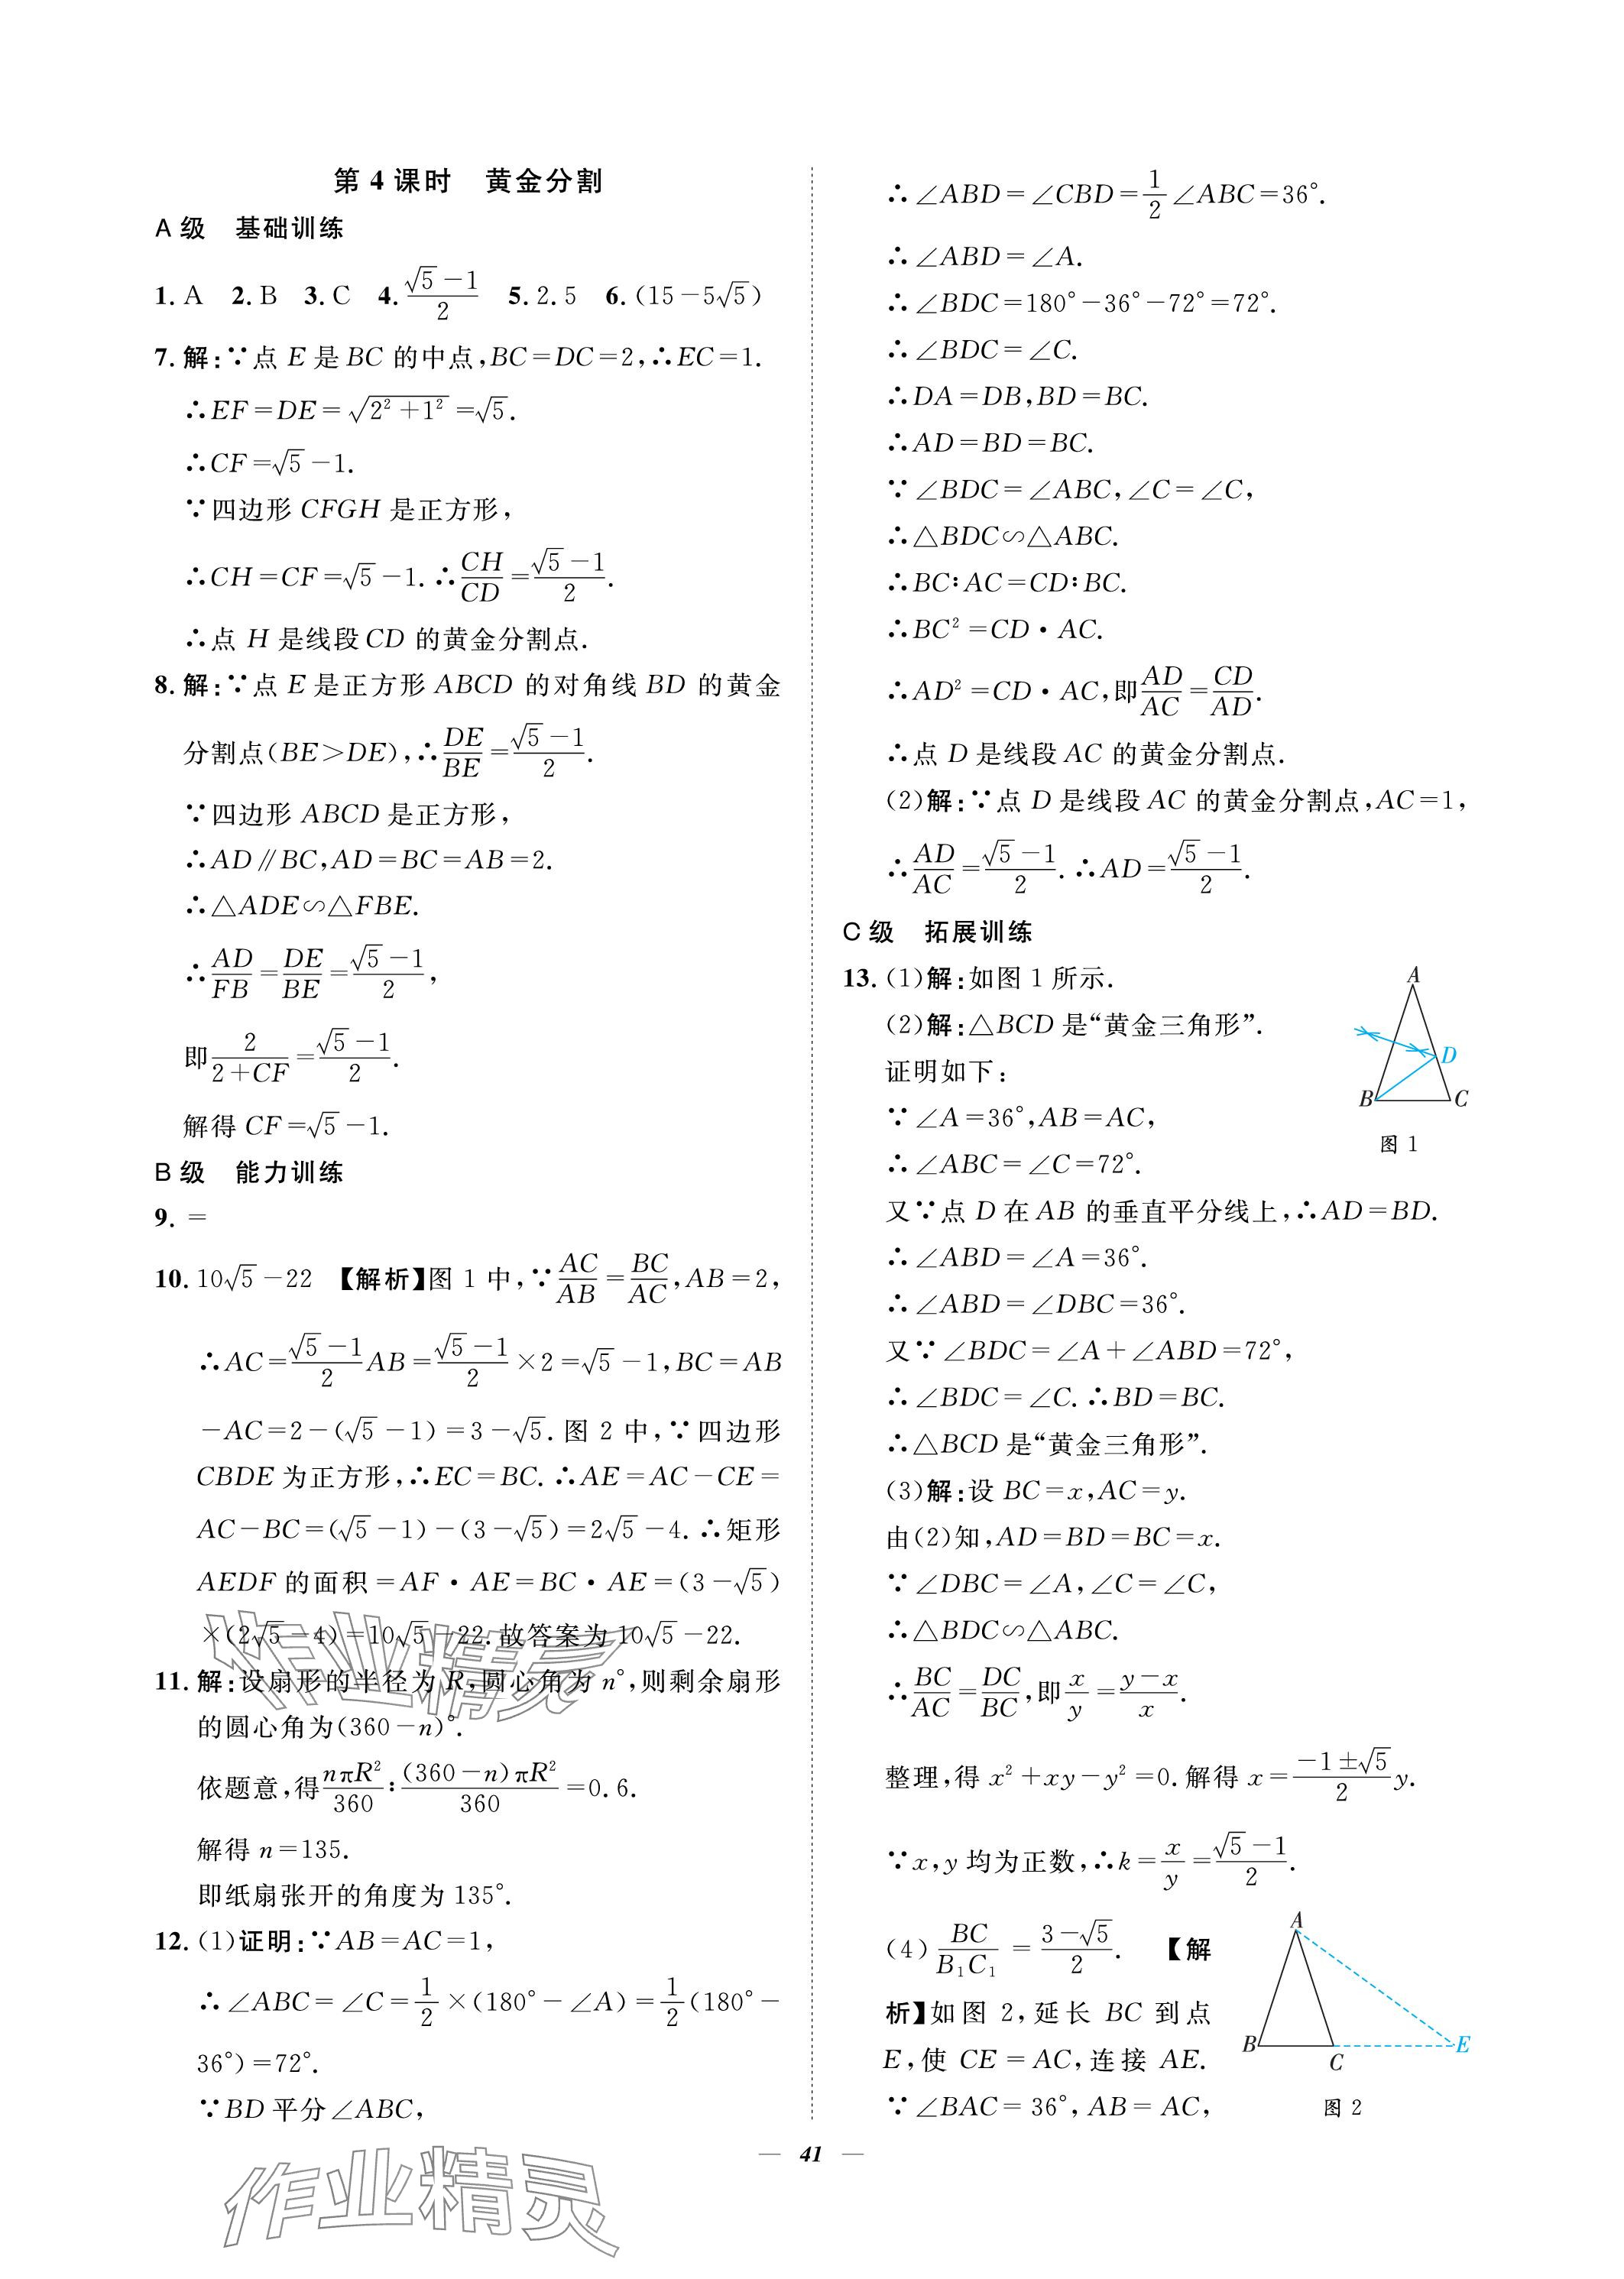 第 4 课时　黄金分割
A 级　基础训练
1. A　2. B　3. C　4. (√5－1)/2　5. 2.5　6. (15－5√5)
7. 解:∵点 E 是 BC 的中点,BC＝DC＝2,∴EC＝1.
∴EF＝DE＝√(2²＋1²)＝√5.
∴CF＝√5－1.
∵四边形 CFGH 是正方形,
∴CH＝CF＝√5－1.∴CH/CD＝(√5－1)/2.
∴点 H 是线段 CD 的黄金分割点.
8. 解:∵点 E 是正方形 ABCD 的对角线 BD 的黄金
分割点(BE＞DE),∴DE/BE＝(√5－1)/2.
∵四边形 ABCD 是正方形,
∴AD∥BC,AD＝BC＝AB＝2.
∴△ADE∽△FBE.
∴AD/FB＝DE/BE＝(√5－1)/2,
即 2/(2＋CF)＝(√5－1)/2.
解得 CF＝√5－1.
B 级　能力训练
9. ＝
10. 10√5－22 【解析】图 1 中,∵AC/AB＝BC/AC,AB＝2,
∴AC＝(√5－1)/2 AB＝(√5－1)/2×2＝√5－1,BC＝AB
－AC＝2－(√5－1)＝3－√5.图 2 中,∵四边形
CBDE 为正方形,∴EC＝BC.∴AE＝AC－CE＝
AC－BC＝(√5－1)－(3－√5)＝2√5－4.∴矩形
AEDF 的面积＝AF·AE＝BC·AE＝(3－√5)
×(2√5－4)＝10√5－22.故答案为 10√5－22.
11. 解:设扇形的半径为 R,圆心角为 n°,则剩余扇形
的圆心角为(360－n)°.
依题意,得 nπR²/360∶(360－n)πR²/360＝0.6.
解得 n＝135.
即纸扇张开的角度为 135°.
12. (1)证明:∵AB＝AC＝1,
∴∠ABC＝∠C＝1/2×(180°－∠A)＝1/2(180°－
36°)＝72°.
∵BD 平分∠ABC,
∴∠ABD＝∠CBD＝1/2∠ABC＝36°.
∴∠ABD＝∠A.
∴∠BDC＝180°－36°－72°＝72°.
∴∠BDC＝∠C.
∴DA＝DB,BD＝BC.
∴AD＝BD＝BC.
∵∠BDC＝∠ABC,∠C＝∠C,
∴△BDC∽△ABC.
∴BC∶AC＝CD∶BC.
∴BC²＝CD·AC.
∴AD²＝CD·AC,即 AD/AC＝CD/AD.
∴点 D 是线段 AC 的黄金分割点.
(2)解:∵点 D 是线段 AC 的黄金分割点,AC＝1,
∴AD/AC＝(√5－1)/2.∴AD＝(√5－1)/2.
C 级　拓展训练
13. (1)解:如图 1 所示.
(2)解:△BCD 是“黄金三角形”.
证明如下:
∵∠A＝36°,AB＝AC,
∴∠ABC＝∠C＝72°.
A
D
B
C
图 1
又∵点 D 在 AB 的垂直平分线上,∴AD＝BD.
∴∠ABD＝∠A＝36°.
∴∠ABD＝∠DBC＝36°.
又∵∠BDC＝∠A＋∠ABD＝72°,
∴∠BDC＝∠C.∴BD＝BC.
∴△BCD 是“黄金三角形”.
(3)解:设 BC＝x,AC＝y.
由(2)知,AD＝BD＝BC＝x.
∵∠DBC＝∠A,∠C＝∠C,
∴△BDC∽△ABC.
∴BC/AC＝DC/BC,即 x/y＝(y－x)/x.
整理,得 x²＋xy－y²＝0.解得 x＝(－1±√5)/2 y.
∵x,y 均为正数,∴k＝x/y＝(√5－1)/2.
(4) BC/B₁C₁＝(3－√5)/2. 【解
析】如图 2,延长 BC 到点
E,使 CE＝AC,连接 AE.
∵∠BAC＝36°,AB＝AC,
A
B
C
E
图 2
41
作业精灵
作业精灵